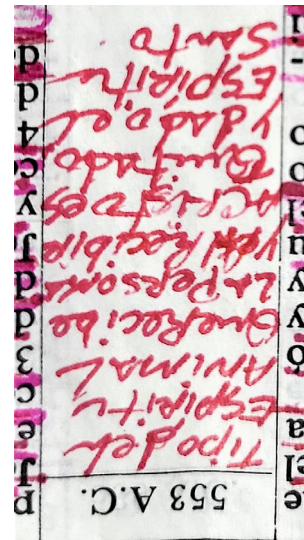 553 A.C.
TIPO del
ESPIRITU
ANIMAL
QueRecibe
LA PERSONA
YAl Recibir
A CRISTO ES
Quitado
Y dado el
ESPIRITU
SANTO